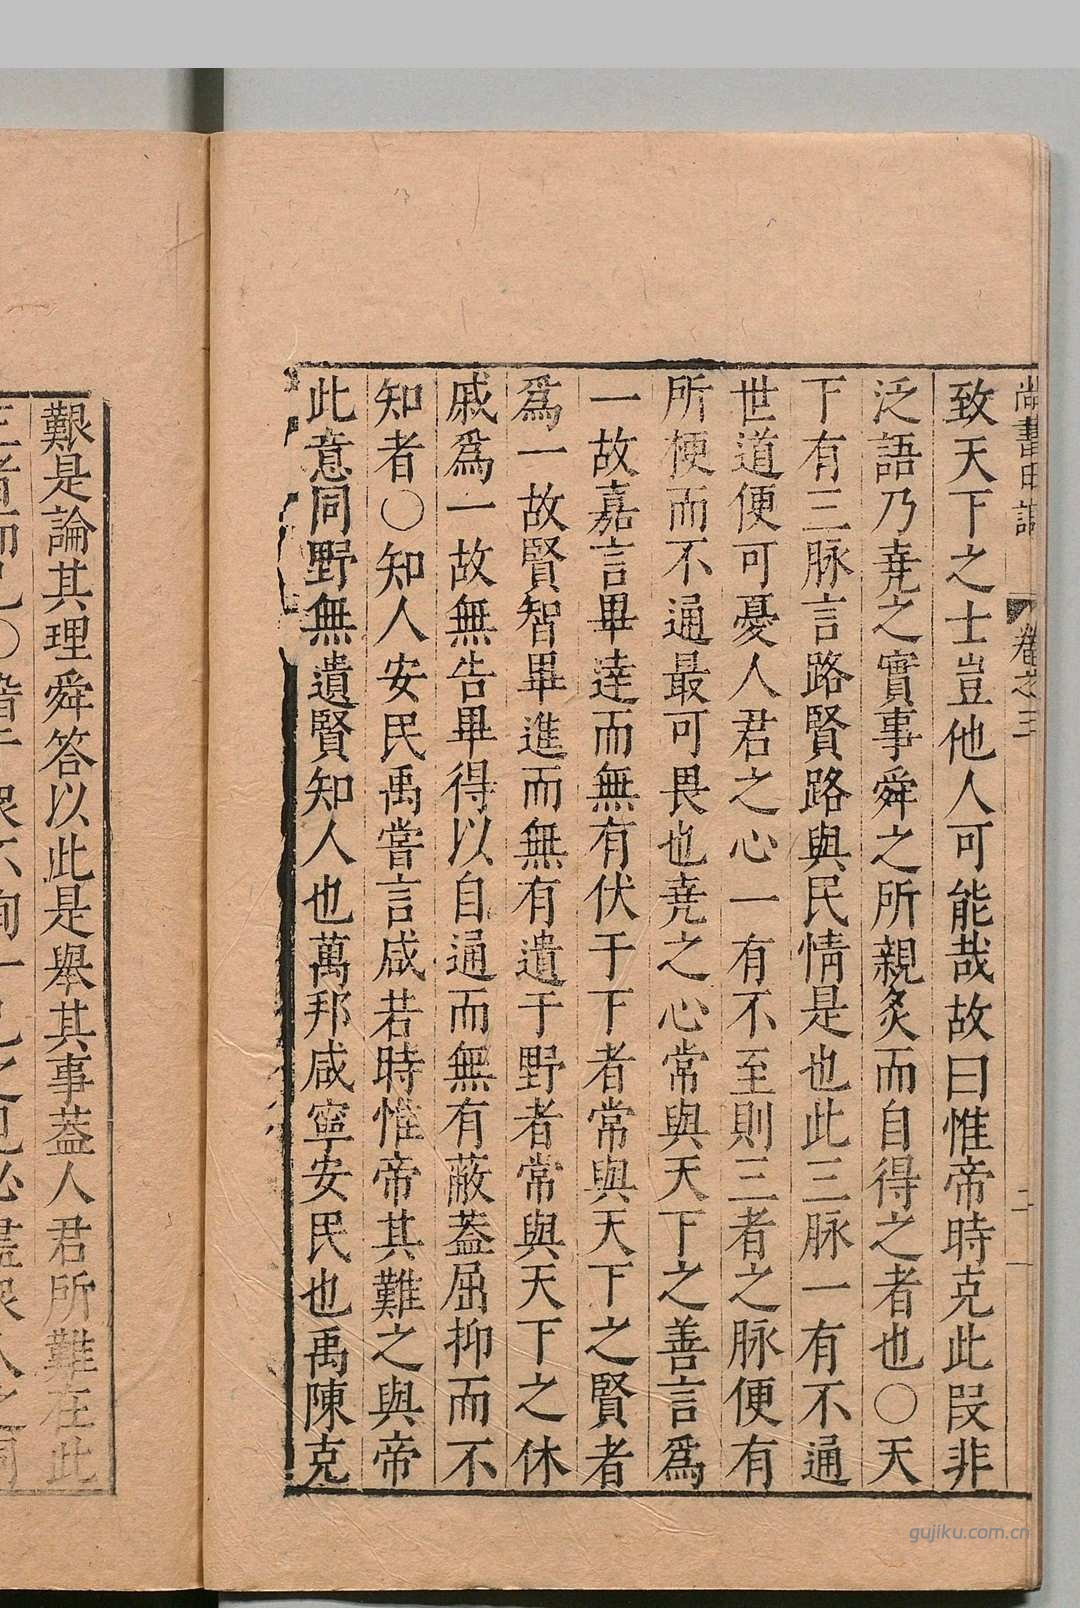 尚書日記
卷之三
二
致天下之士豈他人可能哉故曰惟帝時克此段非
泛語乃尭之實事舜之所親炙而自得之者也○天
下有三脉言路賢路與民情是也此三脉一有不通
世道便可憂人君之心一有不至則三者之脉便有
所梗而不通最可畏也尭之心常與天下之善言為
一故嘉言畢達而無有伏于下者常與天下之賢者
為一故賢智畢進而無有遺于野者常與天下之休
戚為一故無告畢得以自通而無有蔽葢屈抑而不
知者○知人安民禹嘗言咸若時惟帝其難之與帝
此意同野無遺賢知人也萬邦咸寧安民也禹陳克
艱是論其理舜答以此是舉其事葢人君所難在此
gujiku.com.cn